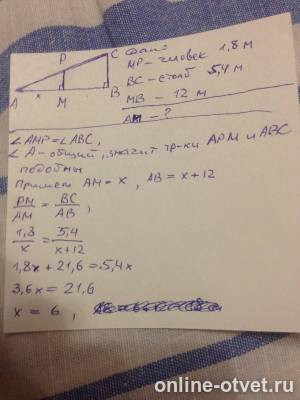 P
C
A
x
M
B
Дано
MP - человек 1,8 м
BC - столб 5,4 м
MB - 12 м
AM - ?
∠AMP = ∠ABC,
∠A - общий, значит тр-ки APM и ABC
подобны
Примем AM = x, AB = x + 12
PM/AM = BC/AB,
1,8/x = 5,4/x+12
1,8x + 21,6 = 5,4x
3,6x = 21,6
x = 6,
online-otvet.ru